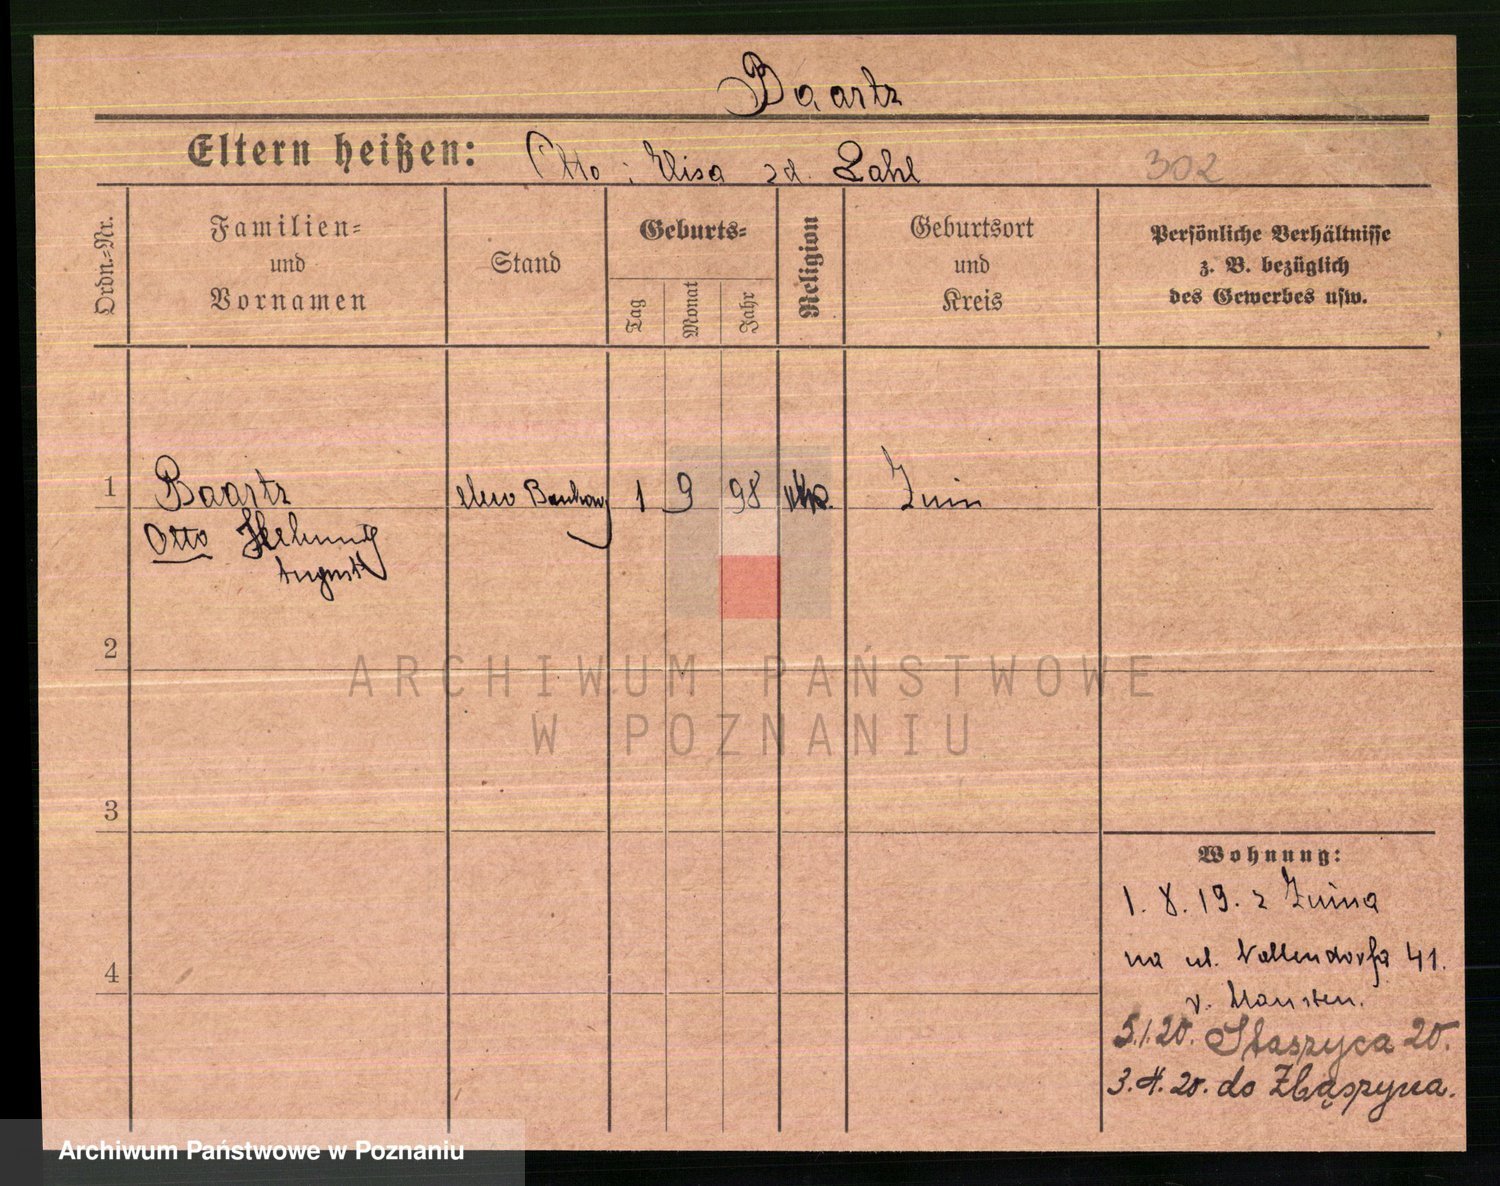 Baartz
Eltern heißen: Otto i Elisa zd. Lahl 302
Ordn.-Nr.
Familien-
und
Vornamen
Stand
Geburts-
Tag
Monat
Jahr
Religion
Geburtsort
und
Kreis
Persönliche Verhältnisse
z. B. bezüglich
des Gewerbes usw.
1 Baartz elew 1 9 98 Żnin
Otto Helmuth
August
2
3
4
Wohnung:
1. 8. 19. z Żnina
na ul. Wallendorfa 41.
v. Manstein.
5.1.20. Staszyca 20.
3. 4. 20. do Zbąszyna.
ARCHIWUM PAŃSTWOWE
W POZNANIU
Archiwum Państwowe w Poznaniu